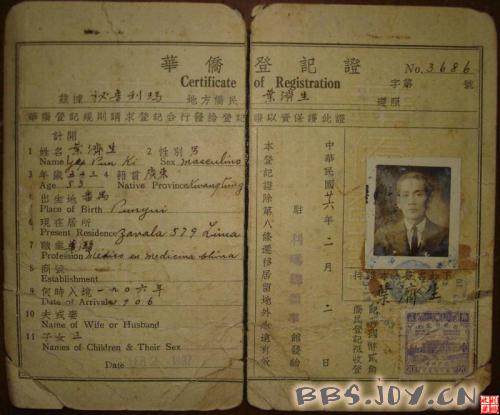 華僑登記證
Certificate of Registration
No. 3686
字第 號
茲據 秘魯利瑪 地方僑民 葉濟生 遵照
華僑登記規則請求登記合行發給登記證以資保護此證
計開
1 姓名 葉濟生 2 性別 男
Name Yep Pun Ki Sex masculino
3 年歲 五十三 4 籍貫 廣東
Age 53 Native Province Kwangtung
5 出生地 番禺
Place of Birth Punyui
6 現在居所
Present Residence Zavala 579 Lima
7 職業
Profession Medico en medicina china
8 商號
Establishment
9 何時入境 一九〇六年
Date of Arrival 1906
10 夫或妻
Name of Wife or Husband
11 子女
Names of Children & Their Sex
Date
本登記證除第八條遷移居留地外永遠有效
中華民國廿六年二月二日
駐 利瑪總領事 館發給
葉濟生
BBS.JDY.CN